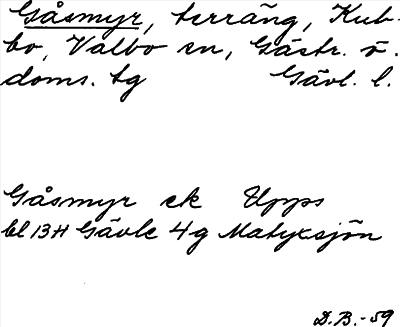 Gåsmyr, terräng, Kub-
bo, Valbo sn, Gästr. ö.
doms. tg Gävl. l.
Gåsmyr ek Upps
bl 13H Gävle 4g Matyxsjön
D.B.-59